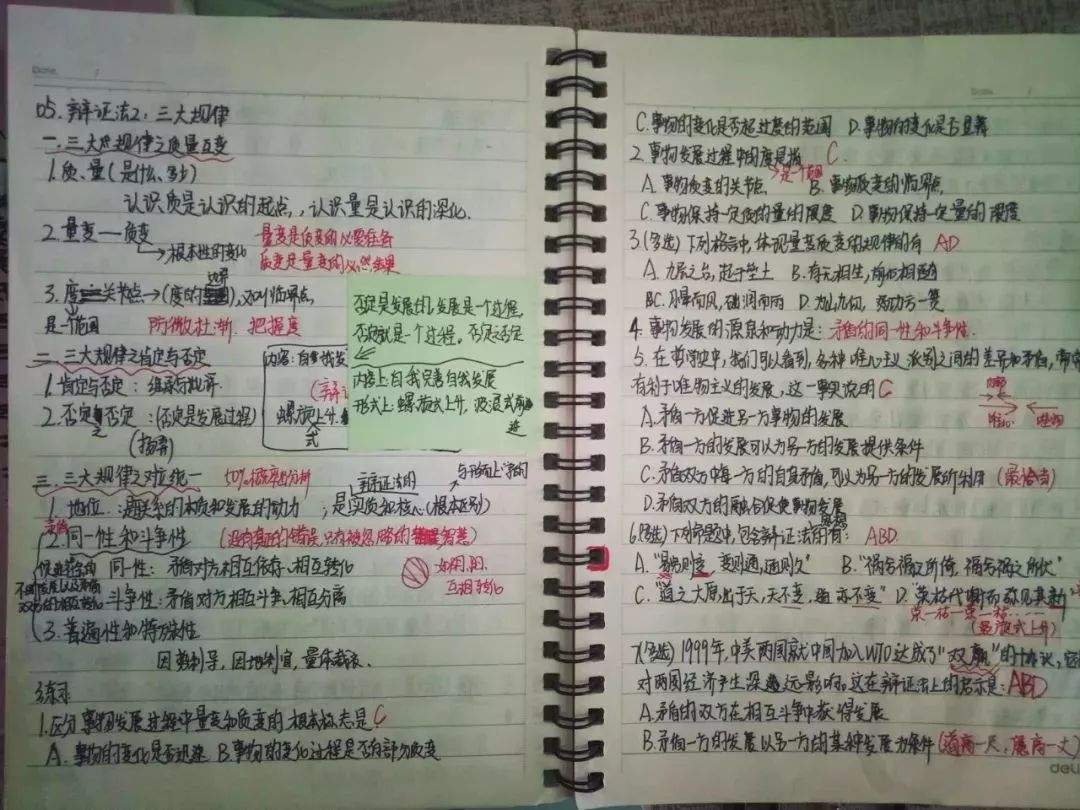 Date
05.辩证法2:三大规律
一.三大规律之质量互变
1.质、量(是什么、多少)
认识质是认识的起点,认识量是认识的深化.
2.量变—质变
→根本性的变化
量变是质变的必要准备
质变是量变的必然结果
3.度 关节点→(度的),又叫临界点,
是一个范围 防微杜渐 把握度
二.三大规律之肯定与否定
1.肯定与否定:继承与批评
2.否定之否定:(否定是发展过程)
(扬弃)
内容:自我发
螺旋上升
式
否定是发展的,发展是一个过程,
否定就是一个过程。否定之否定
内容上:自我完善自我发展
形式上:螺旋式上升,波浪式前
进
三.三大规律之对立统一 概率分析
辩证法的 与形而上学的
1.地位:联系的本质和发展的动力,是实质和核心(根本区别)
2.同一性和斗争性
同一性:矛盾对方相互依存、相互转化
如阴、阳、
互相转化
斗争性:矛盾对方相互斗争、相互分离
3.普遍性和特殊性
因势利导,因地制宜,量体裁衣.
练习
1.区分事物发展过程中量变和质变的根本标志是 C
A.事物的变化是否迅速 B.事物的变化过程是否有部分质变
Date
C.事物的变化是否超过度的范围 D.事物的变化是否显著
2.事物发展过程中的度是指 C.
→是一个范围
A.事物质变的关节点 B.事物质变的临界点
C.事物保持一定质的量的限度 D.事物保持一定量的限度
3.(多选)下列格言中,体现量变质变的规律的有 AD
A.九层之台,起于垒土 B.有无相生,前后相随
C.月晕而风,础润而雨 D.为山九仞,功亏一篑
4.事物发展的源泉和动力是:矛盾的同一性和斗争性.
5.在哲学史中,我们可以看到,各种唯心主义派别之间的差异和矛盾,常常
有利于唯物主义的发展,这一事实说明 C
唯心 唯物
A.矛盾一方促进另一方事物的发展
B.矛盾一方的发展可以为另一方的发展提供条件
C.矛盾双方每一方的自身矛盾,可以为另一方的发展所利用(最恰当)
D.矛盾双方的融合促使事物发展
6.(多选)下列命题中,包含辩证法的有: ABD.
思想
A."易穷则变,变则通,通则久" B."祸兮福之所倚,福兮祸之所伏"
C."道之大原出于天,天不变,道亦不变" D."荣枯代谢而弥见其新"
荣—枯—荣—枯……
(螺旋式上升)
7.(多选)1999年,中美两国就中国加入WTO达成了"双赢"的协议,它
对两国经济产生深远影响。这在辩证法上的启示是:ABD
A.矛盾的双方在相互斗争中获得发展
B.矛盾一方的发展以另一方的某种发展为条件(道高一尺,魔高一丈)
deli